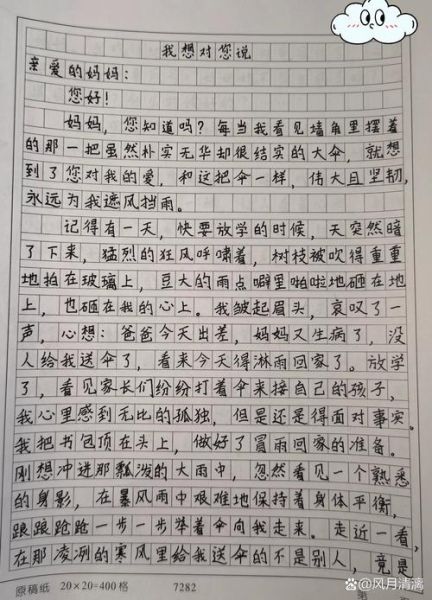 我想对您说
亲爱的妈妈：
您好！
妈妈，您知道吗？每当我看见墙角里摆着
的那一把虽然朴实无华却很结实的大伞，就想
到了您对我的爱，和这把伞一样，伟大且坚韧，
永远为我遮风挡雨。
记得有一天，快要放学的时候，天突然暗
了下来，猛烈的狂风呼啸着，树枝被吹得重重
地拍在玻璃上，豆大的雨点噼里啪啦地砸在地
上，也砸在我的心上。我皱起眉头，哀叹了一
声，心想：爸爸今天出差，妈妈又生病了，没
人给我送伞了，看来今天得淋雨回家了。放学
了，看见家长们纷纷打着伞来接自己的孩子，
我心里感到无比的孤独，但是还是得面对事实。
我把书包顶在头上，做好了冒雨回家的准备。
刚想冲进那瓢泼的大雨中，忽然看见一个熟悉
的身影，在暴风雨中艰难地保持着身体平衡，
踉踉跄跄一步一步举着伞向我走来。走近一看，
在那凌冽的寒风里给我送伞的不是别人，竟是
原稿纸 20×20=400格 7282
@风月清漓